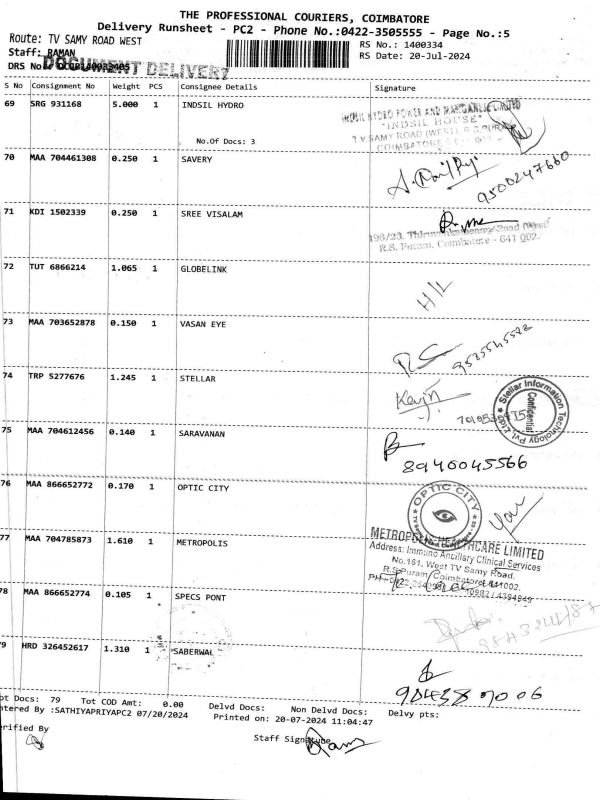 THE PROFESSIONAL COURIERS, COIMBATORE
Delivery Runsheet - PC2 - Phone No.:0422-3505555 - Page No.:5
Route: TV SAMY ROAD WEST
RS No.: 1400334
Staff: RAMAN
RS Date: 20-Jul-2024
DRS No.
DOCUMENT DELIVERY
S No Consignment No Weight PCS Consignee Details Signature
69 SRG 931168 5.000 1 INDSIL HYDRO
No.Of Docs: 3
INDSIL HYDRO POWER AND MANGANESE LIMITED
"INDSIL HOUSE"
T.V SAMY ROAD (WEST), R.S. PURAM
COIMBATORE
70 MAA 704461308 0.250 1 SAVERY
9500247660
71 KDI 1502339 0.250 1 SREE VISALAM
196/23, Thiruvenkataswamy Road (West)
R.S. Puram, Coimbatore - 641 002.
72 TUT 6866214 1.065 1 GLOBELINK
H/L
73 MAA 703652878 0.150 1 VASAN EYE
74 TRP 5277676 1.245 1 STELLAR
Kevin
Stellar Information Technology Pvt. Ltd.
Confidential
75 MAA 704612456 0.140 1 SARAVANAN
8940045566
76 MAA 866652772 0.170 1 OPTIC CITY
OPTIC CITY
77 MAA 704785873 1.610 1 METROPOLIS
METROPOLIS HEALTHCARE LIMITED
Address: Immuno Ancillary Clinical Services
No.161, West TV Samy Road,
R.S Puram, Coimbatore 641002,
78 MAA 866652774 0.105 1 SPECS PONT
79 HRD 326452617 1.310 1 SABERWAL
Tot Docs: 79 Tot COD Amt: 0.00 Delvd Docs: Non Delvd Docs: Delvy pts:
Entered By :SATHIYAPRIYAPC2 07/20/2024 Printed on: 20-07-2024 11:04:47
Verified By
Staff Signature